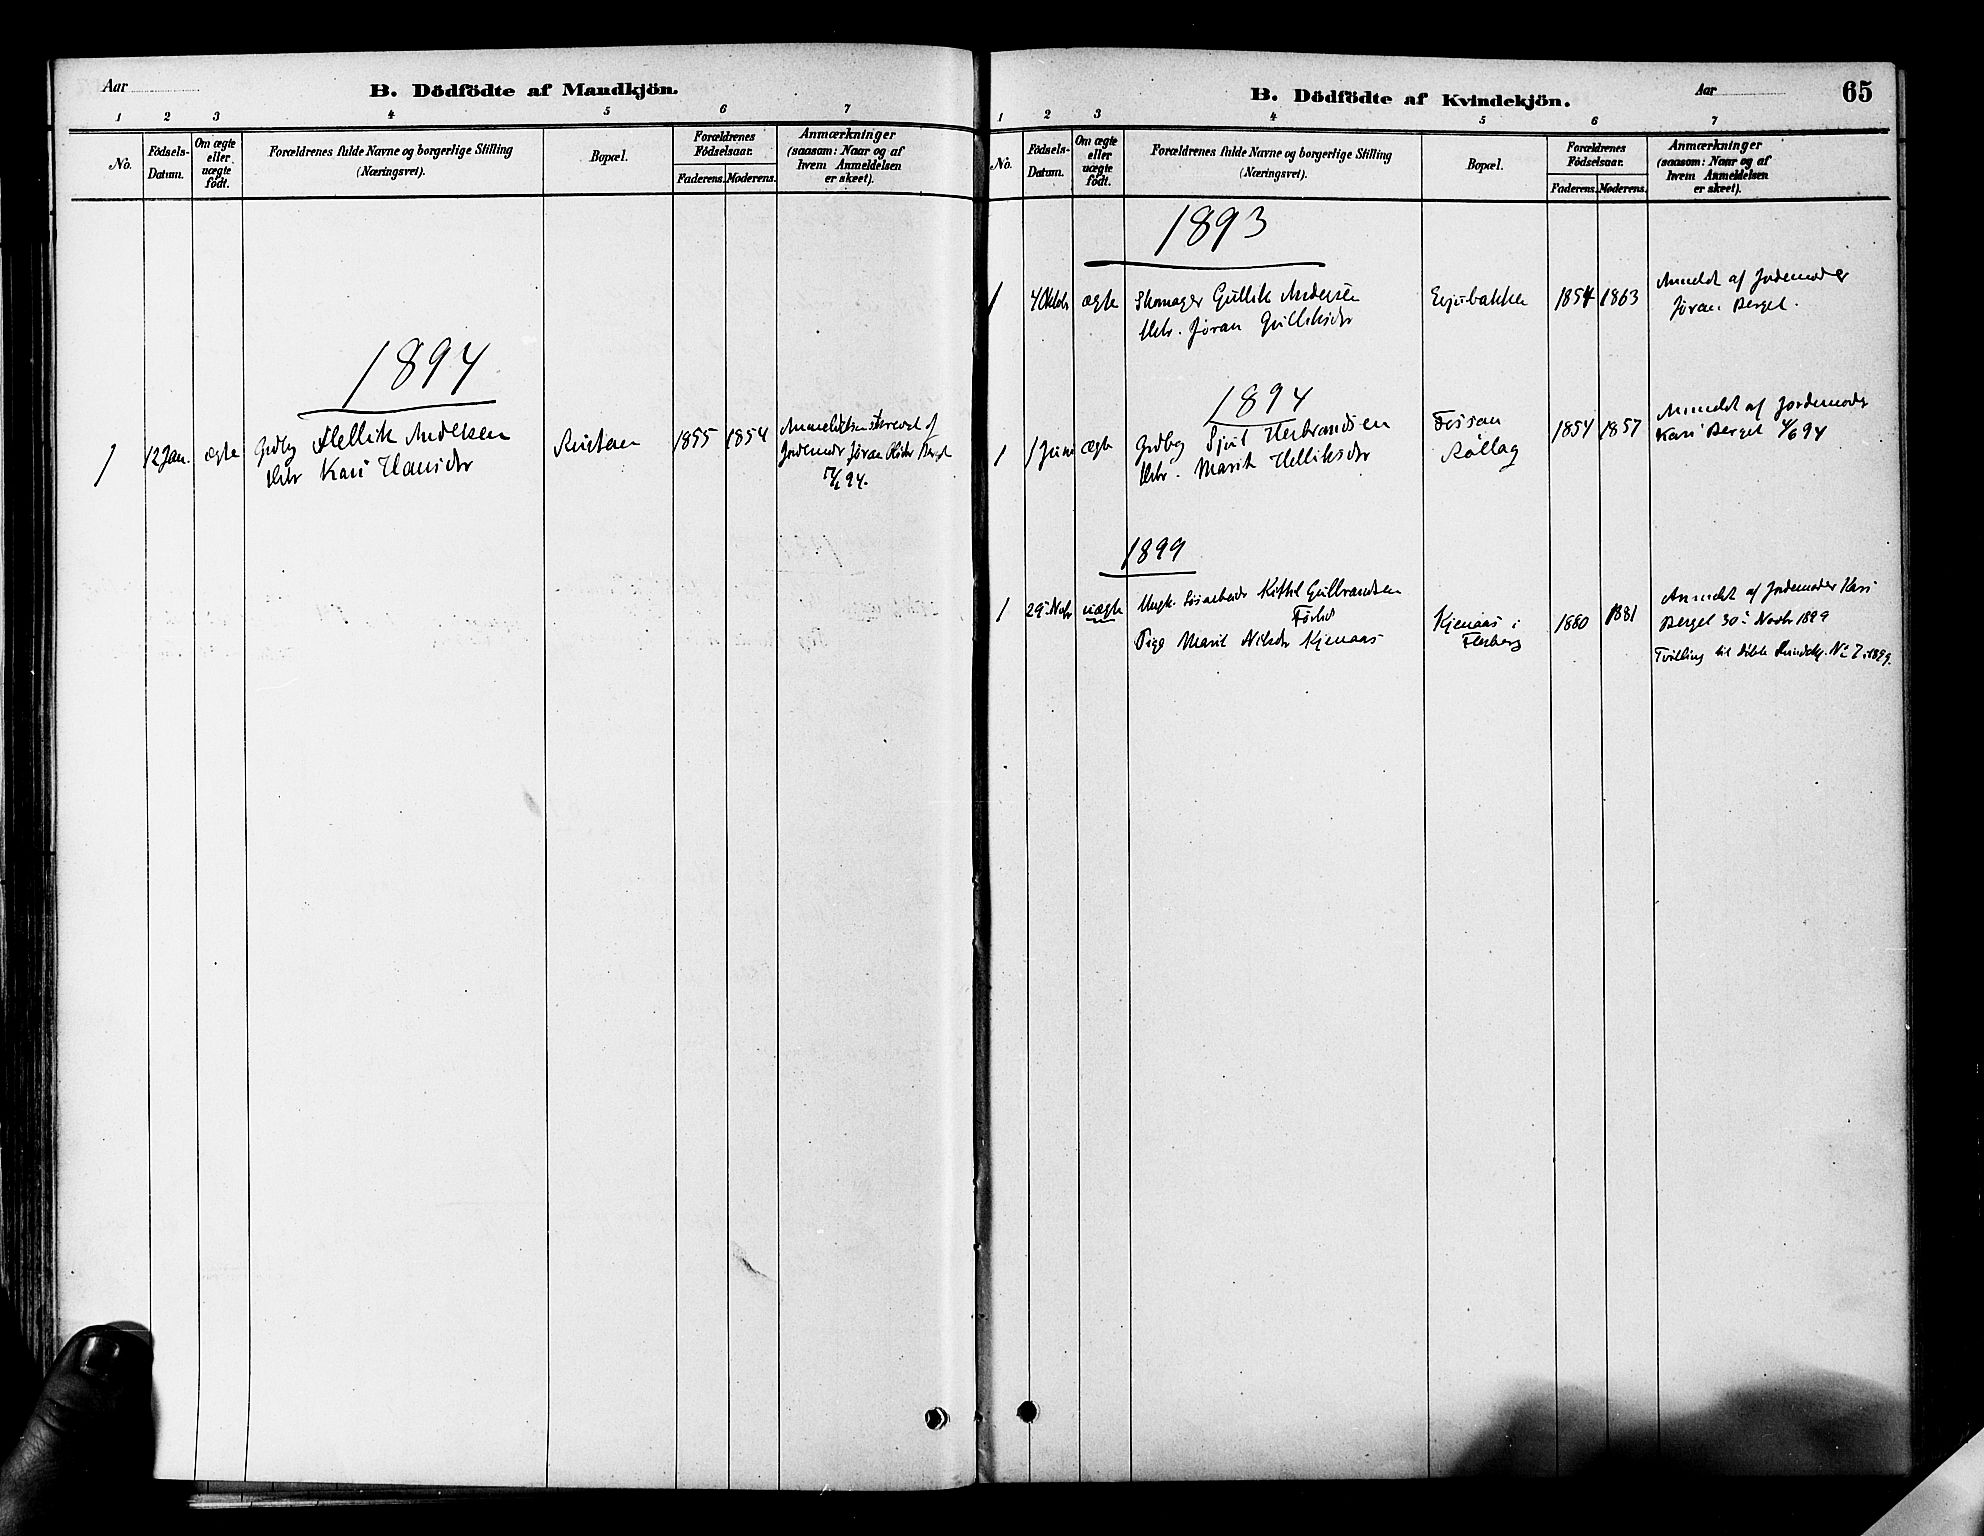 Aar
B. Dödfödte af Mandkjön.
1 2 3 4 5 6 7
No.
Födsels-
Datum.
Om ægte
eller
uægte
födt.
Forældrenes fulde Navne og borgerlige Stilling
(Næringsvei).
Bopæl.
Forældrenes
Födselsaar.
Faderens. Moderens.
Anmærkninger
(saasom: Naar og af
hvem Anmeldelsen
er skeet).
1894
1 12 Jan. ægte Grdbr Hellik Andersen
Hstr Kari Hansdr
1855 1854
Jordemoder Jøran
94.
B. Dödfödte af Kvindekjön.
Aar
65
1 2 3 4 5 6 7
No.
Födsels-
Datum.
Om ægte
eller
uægte
födt.
Forældrenes fulde Navne og borgerlige Stilling
(Næringsvei).
Bopæl.
Forældrenes
Födselsaar.
Faderens. Moderens.
Anmærkninger
(saasom: Naar og af
hvem Anmeldelsen
er skeet).
1893
1 4 Oktbr ægte Skomager Gullik Andersen
Hstr. Jøran Gulliksdr
Evjubakken
1854 1863
Anmeldt af Jordemoder
Jøran Berget.
1894
1 1 Juni ægte Herbrandsen
Hstr. Marit Helliksdr
Fossan
Rollag
1854 1857
Anmeldt af Jordemoder
Kari Berget 4/6 94
1899
1 29 Novbr uægte Ungk. Løsarbeider Kittel Gulbrandsen
Pige Marit Nilsdr Kjenaas
Kjenaas i
Flesberg
1880 1881
Anmeldt af Jordemoder Kari
Berget 30 Novbr 1899
Tvilling til døbte Kvindekj. No 7 1899.